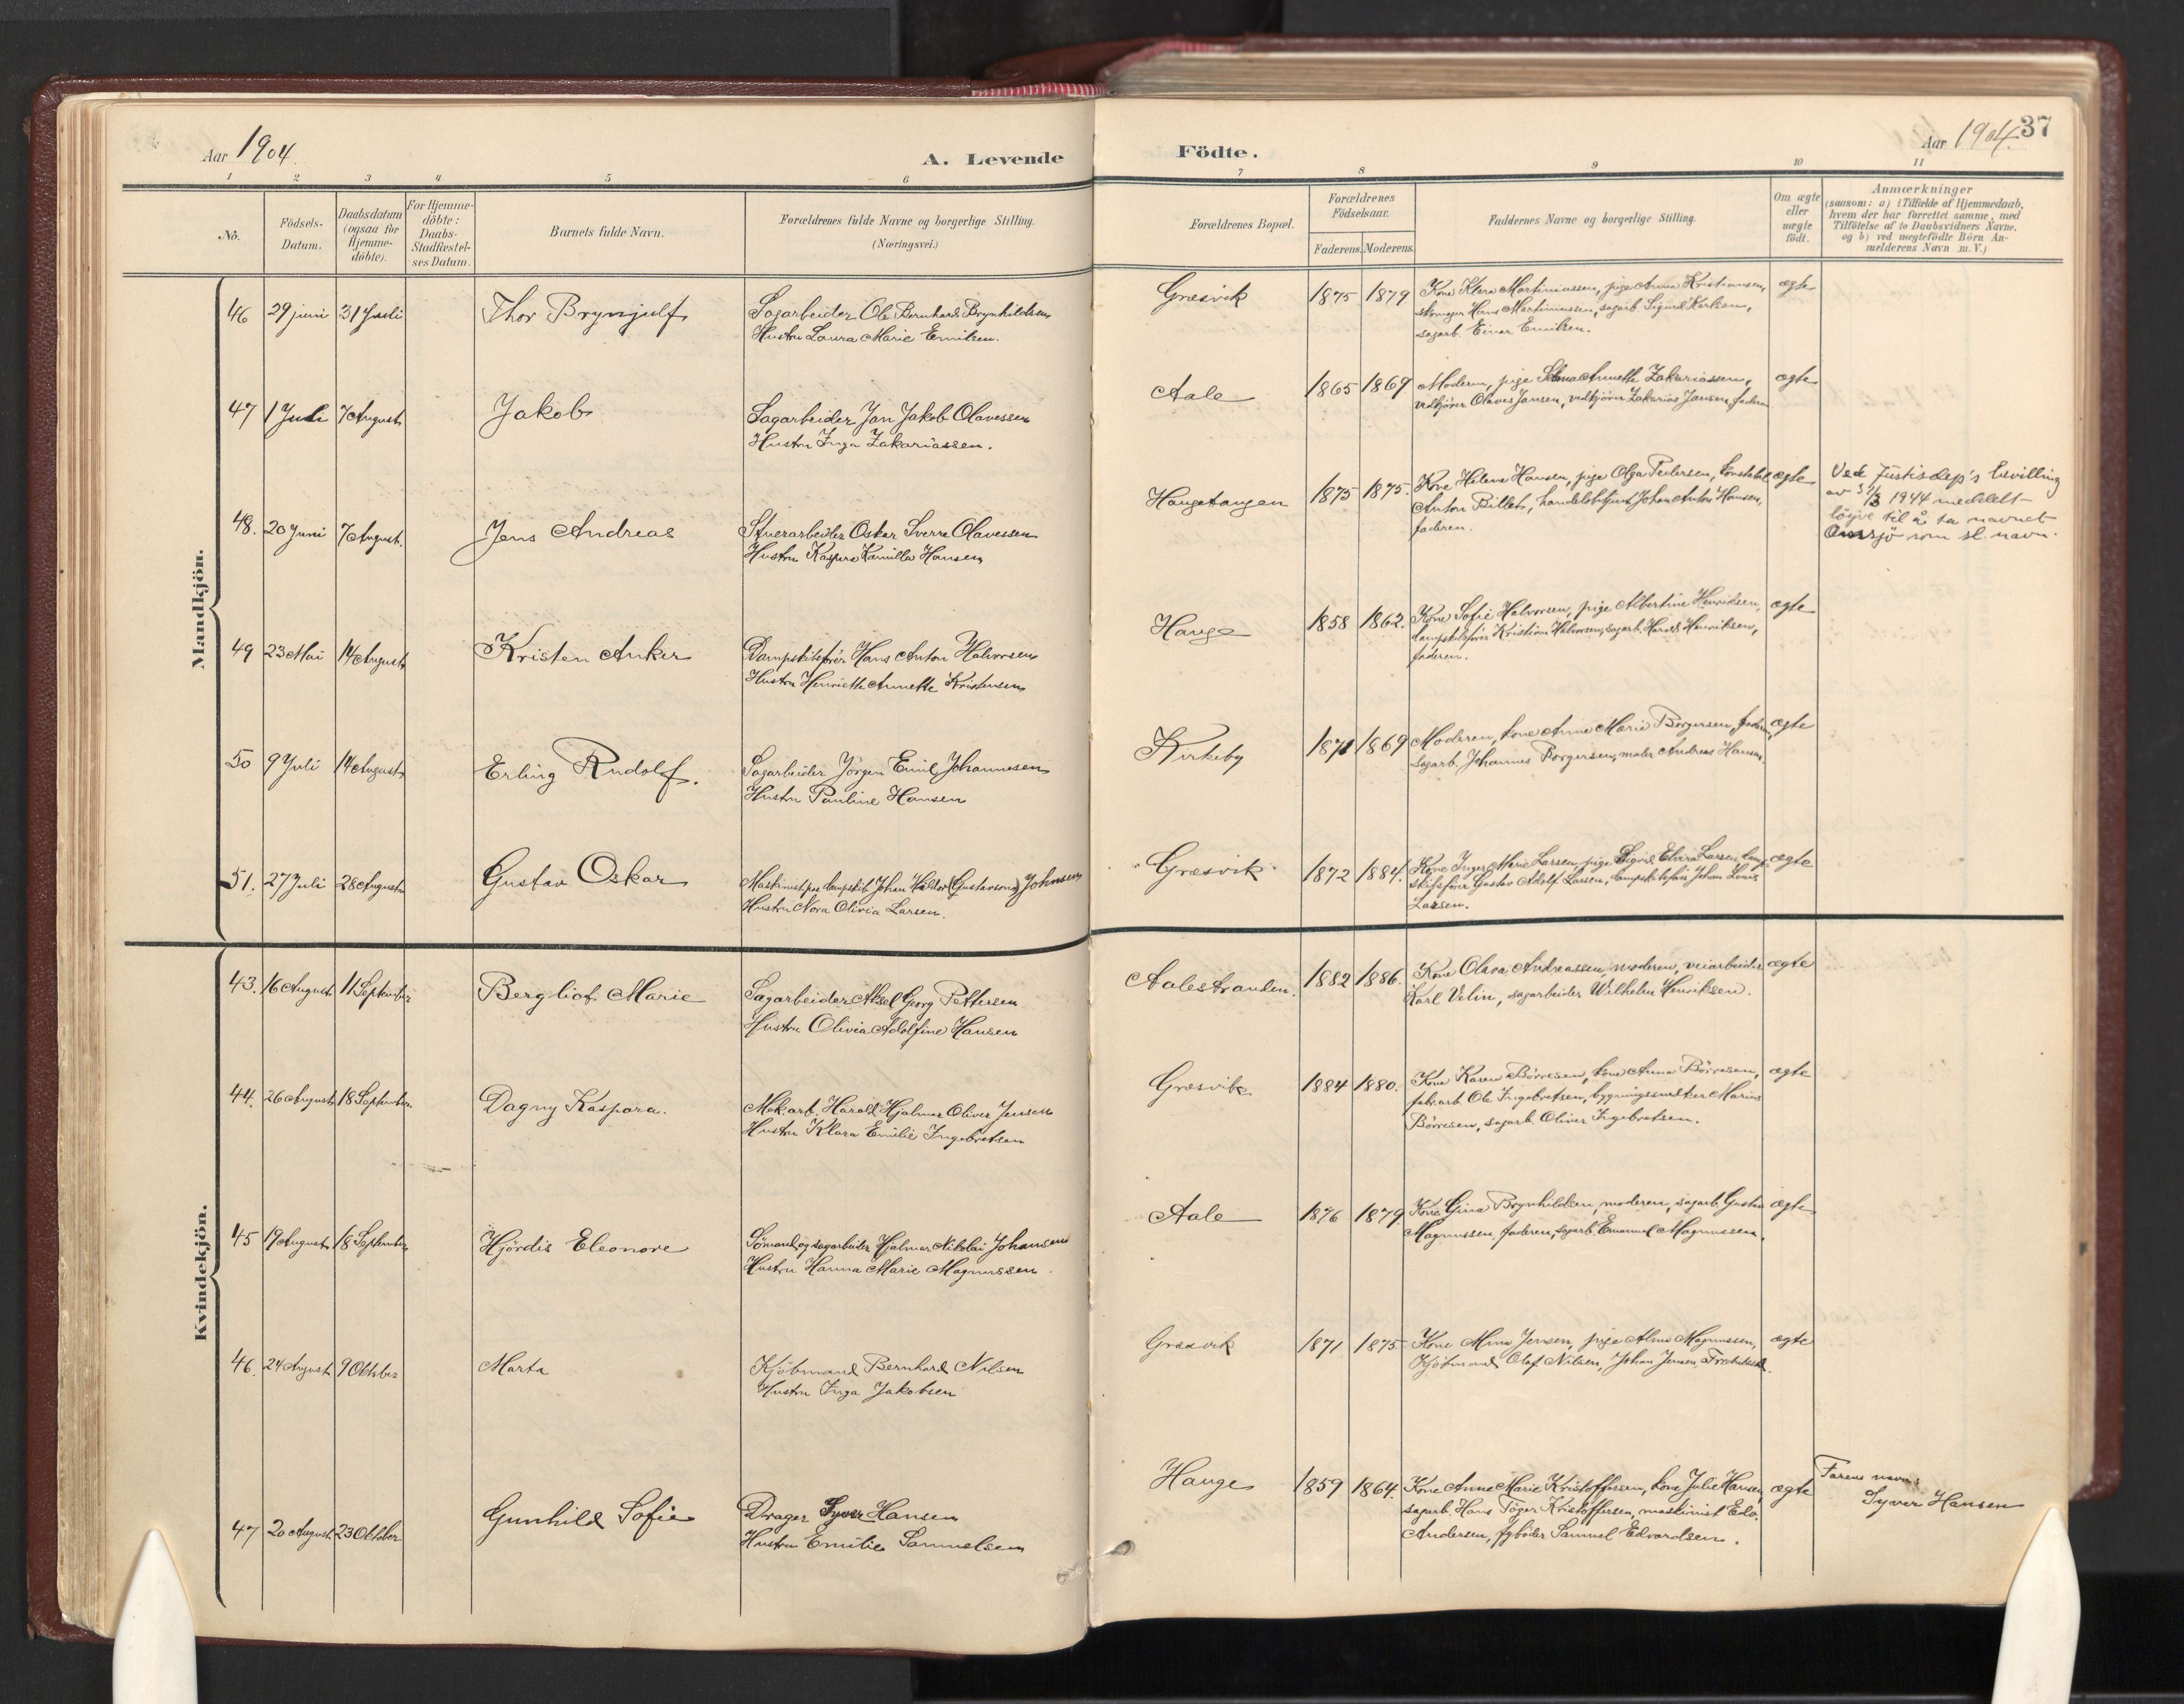 Aar 1904.
A. Levende
1 2 3 4 5 6
No.
Födsels-
Datum.
Daabsdatum
(ogsaa for
Hjemme-
döbte).
For Hjemme-
döbte:
Daabs-
Stadfæstel-
ses Datum.
Barnets fulde Navn.
Forældrenes fulde Navne og borgerlige Stilling.
(Næringsvei.)
Mandkjön.
46 29 juni 31 Juli Thor Brynjulf Sagarbeider Ole Bernhard Brynhildsen
Hustru Laura Marie Emilsen.
47 1 Juli 7 August Jakob Sagarbeider Jan Jakob Olavessen
Hustru Inga Zakariassen.
48. 20 Juni 7 August. Jens Andreas Stuerarbeider Oskar Sverre Olavessen
Hustru Kaspara Kamilla Hansen
49 23 Mai 14 August Kristen Anker Dampskibsfører Hans Anton Halvorsen
Hustru Henriette Annette Kristensen
50 9 Juli 14 August Erling Rudolf. Sagarbeider Jörgen Emil Johannesen
Hustru Pauline Hansen
51. 27 Juli 28 August Gustav Oskar Maskinist paa dampskib Johan Haldor (Gustavson) Johnsen
Hustru Nora Olivia Larsen.
Kvindekjön.
43. 16 August 11 September Bergliot Marie Sagarbeider Aksel Georg Pettersen
Hustru Olivia Adolfine Hansen
44. 26 August 18 September Dagny Kaspara. Mek. arb. Harald Hjalmar Oliver Jensen
Hustru Klara Emilie Ingebretsen
45 19 August 18 September Hjördis Eleonore Sömand og sagarbeider Hjalmar Nikolai Johansen
Hustru Hanna Marie Magnussen
46. 24 August 9 Oktober Marta Kjöbmand Bernhard Nilsen
Hustru Inga Jakobsen
47 20 August 23 Oktober Gunhild Sofie Drager Syver Hansen
Hustru Emilie Samuelsen
Födte.
Aar 1904. 37
7 8 9 10 11
Forældrenes Bopæl.
Forældrenes
Födselsaar.
Faderens. Moderens.
Faddernes Navne og borgerlige Stilling.
Om ægte
eller
uægte
födt.
Anmærkninger
(saasom: a) i Tilfælde af Hjemmedaab,
hvem der har forrettet samme, med
Tilföielse af to Daabsvidners Navne.
og b) ved uægtefödte Börn An-
melderens Navn m. V.)
Græsvik 1875 1879 Kone Klara Martinussen, pige Anna Kristiansen, ægte
Hans Martinussen, sagarb. Sigurd Karlsen,
sagarb. Einar Emilsen.
Aale 1865 1869 Moderen, pige Annette Zakariassen, ægte
vedkjører Olaves Jansen, vedkjører Zakarias Jansen, faderen
Haugetangen 1875 1875. Kone Helene Hansen, pige Olga Pedersen, konstabel ægte
Anton Billets, handelsbetjent Johan Anton Hansen,
faderen.
Ved Justisdep's bevilling
av 1944 meddelt
löyve til å ta navnet
Omsjö som sl. navn.
Hauge 1858 1862. Kone Sofie Halvorsen, pige Albertine Henriksen, ægte
dampskibsfører Kristian Halvorsen, sagarb. Harald Henriksen,
faderen.
Kirkeby 1871 1869 Moderen, kone Anne Marie Borgersen, faderen, ægte
Sagarb. Johannes Borgersen, maler Andreas Hansen.
Græsvik 1872 1884. Kone Inger Marie Larsen, pige Sigrid Elvira Larsen, damp- ægte
skibsfører Gustav Adolf Larsen, dampskibsfører Johan Louis
Larsen.
Aalestranden. 1882 1886. Kone Olava Andreassen, moderen, veiarbeider ægte
Karl Velin, sagarbeider Wilhelm Henriksen.
Græsvik 1884 1880. Kone Karen Börresen, kone Anna Börresen, ægte
fabr.arb. Ole Ingebretsen, bygningssnekker Marius
Börresen, sagarb. Oliver Ingebretsen.
Aale 1876 1879. Kone Gina Brynhildsen, moderen, sagarb. Gustav ægte
Magnussen, faderen, sagarb. Emanuel Magnussen.
Græsvik 1871 1875 Kone Mina Jensen, pige Alma Magnussen, ægte
Kjöbmand Olaf Nilsen, Johan Jensen, Fredrikstad.
Hauge 1859 1864. Kone Anne Marie Kristoffersen, kone Julie Hansen, ægte
sagarb. Hans Töger Kristoffersen, maskinist Edv.
Andersen, fyrböder Samuel Edvardsen.
Farens navn:
Syver Hansen